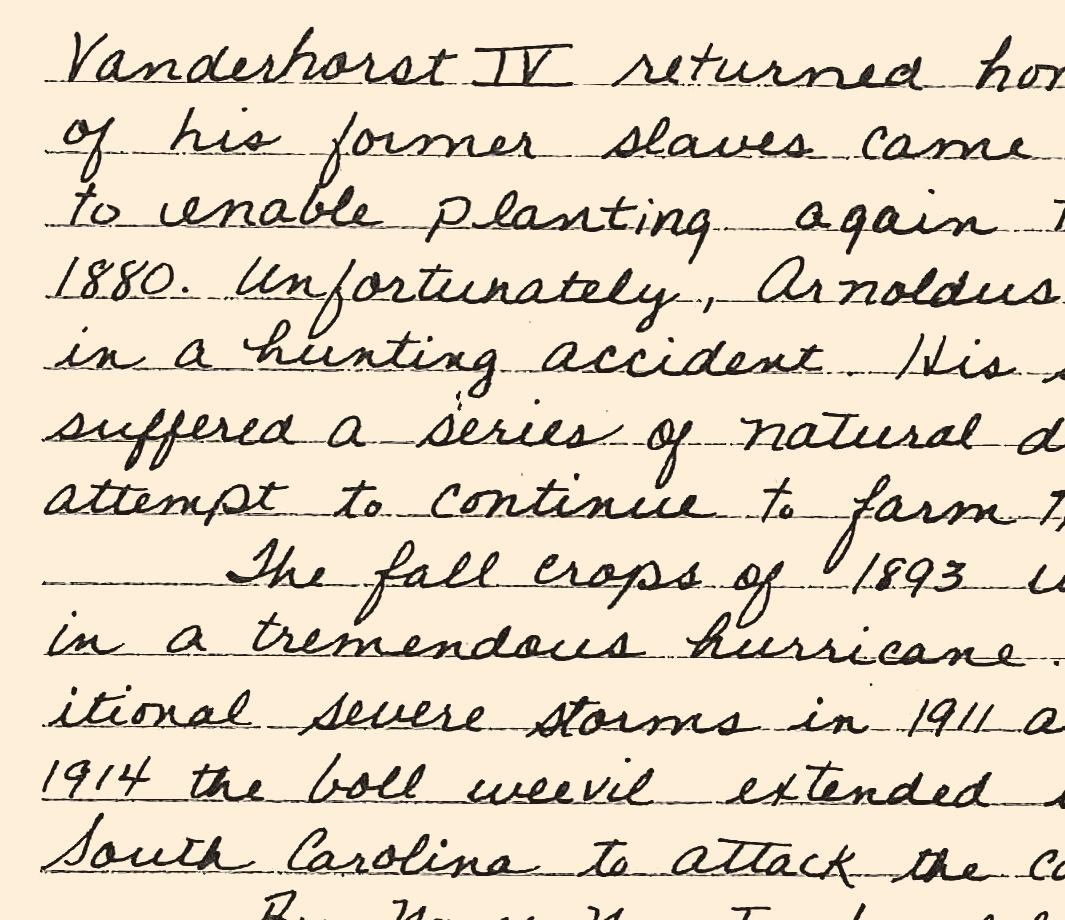 Vanderhorst IV returned
of his former slaves came
to enable planting again
1880. Unfortunately, Arnoldus
in a hunting accident. His
suffered a series of natural
attempt to continue to farm
The fall crops of 1893
in a tremendous hurricane.
itional severe storms in 1911
1914 the boll weevil extended
South Carolina to attack the